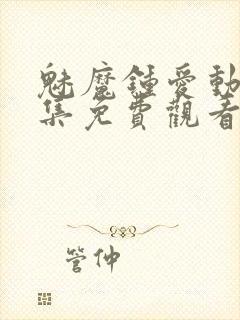 魅魔鍾愛動
集免費觀看
管仲